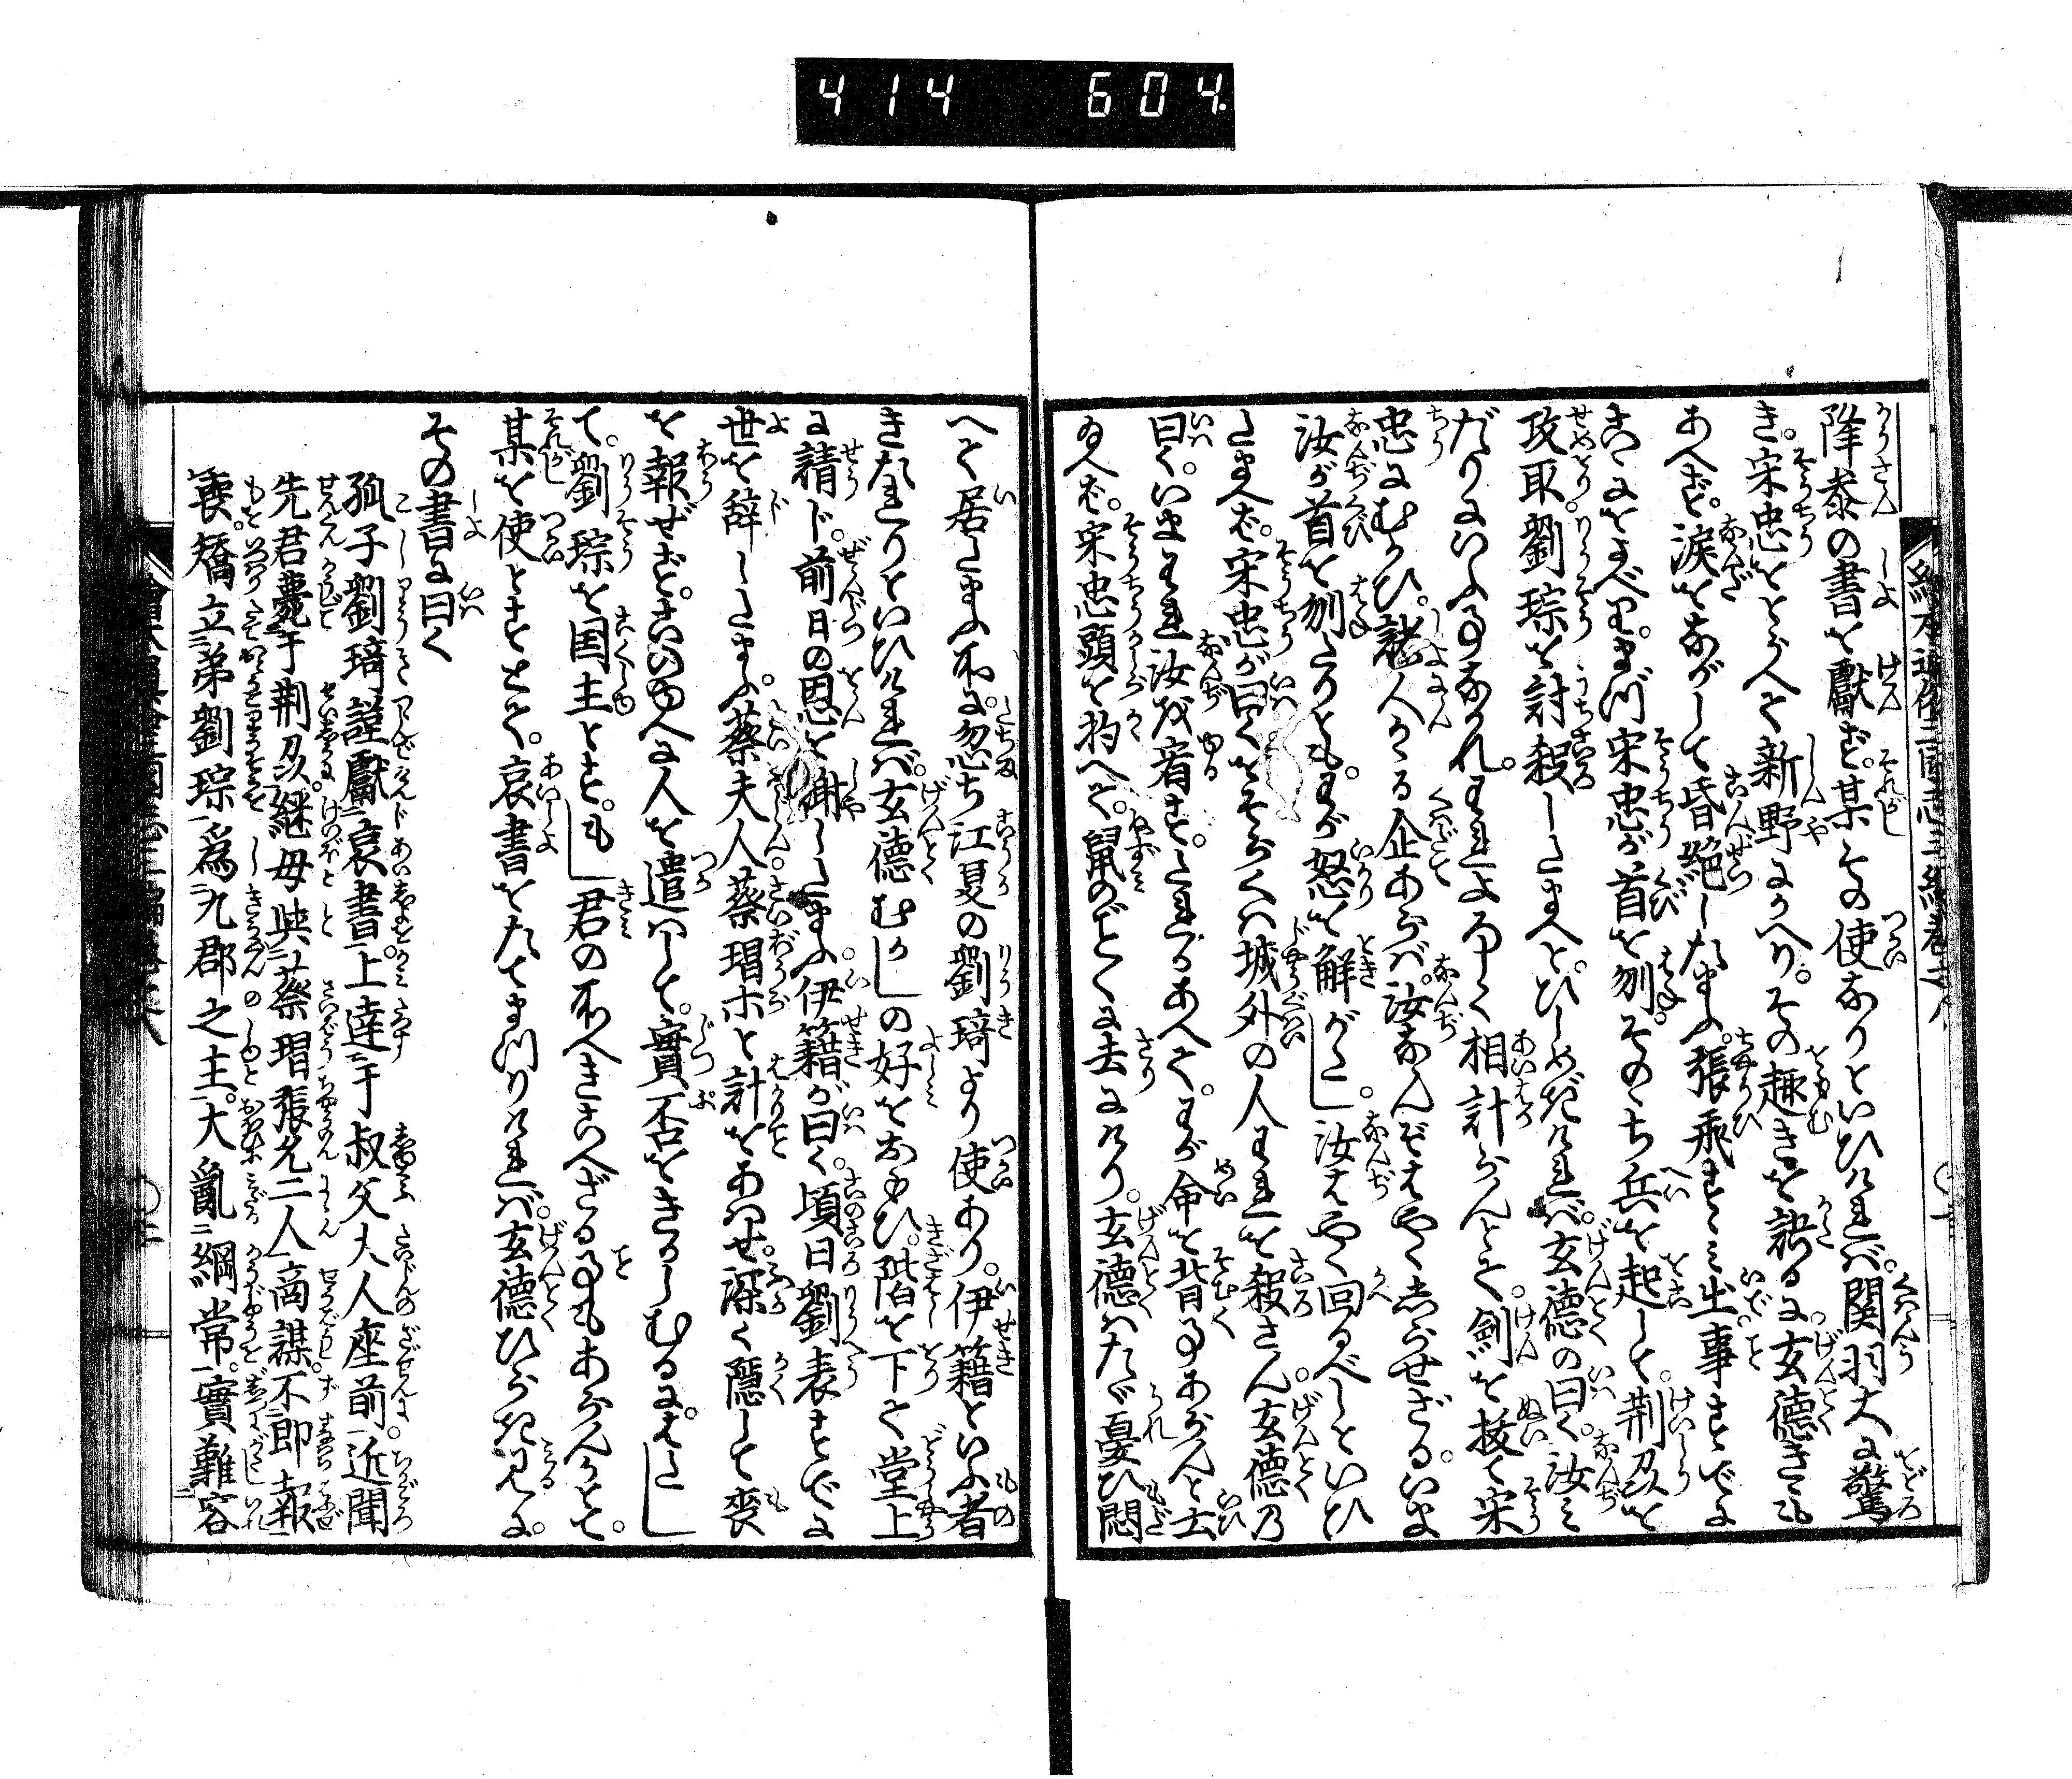 414 604.
降參の書を獻ず。某その使なりといひければ。関羽大に驚
き。宋忠をとらへて新野にかへり。その趣きを訴るに玄德きゝも
あへず。涙をながして昏絶したまふ。張飛すゝみ出事すでに
こゝにをよべり。まづ宋忠が首を刎。そのゝち兵を起して。荆州を
攻取。劉琮を討殺したまへと。ひしめきければ。玄德の曰く。汝み
だりにいふ事なかれ。われよろしく相計らんとて。劍を拔て宋
忠にむかひ。諸人かゝる企あらば。汝なんぞはやくしらせざる。いま
汝が首を刎たりとも。わが怒を解がたし。汝はやく回るべしといひ
たまへば。宋忠が曰くおそらくは城外の人われを殺さん。玄德乃
曰く。いまわれ汝を宥す。たれかあへて。わが命を背事あらんと云
給へば。宋忠頭を抱へて。鼠のごとくに去にけり。玄德はたゞ憂ひ悶
へて居たまふ所に。忽ち江夏の劉琦より使あり。伊籍といふ者
きたれりといひければ。玄德むかしの好をおもひ。階を下て堂上
に請じ。前日の恩を謝したまふ。伊籍が曰く。頃日劉表すでに
世を辞したまふ。蔡夫人蔡瑁ホと計をあはせ。深く隱して喪
を報ぜず。このゆへに人を遣はして。實否をきかしむるに。はたし
て。劉琮を国主とす。もし君の所へきこへざる事もあらんかとて。
某を使とすとて。哀書をたてまつりければ。玄德ひらき見るに。
その書に曰く
孤子劉琦謹獻哀書。上達于叔父大人座前。近聞
先君薨于荆州。継母與蔡瑁張允二人商謀。不即報
喪。矯立弟劉琮爲九郡之主。大亂綱常。實難容